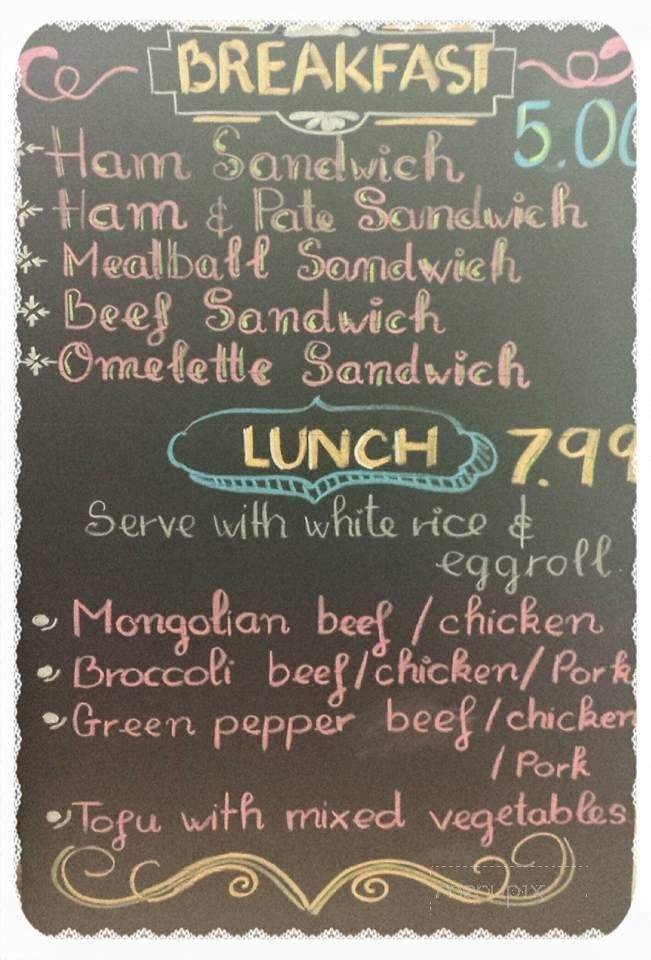 BREAKFAST
5.00
Ham Sandwich
Ham & Pate Sandwich
Meatball Sandwich
Beef Sandwich
Omelette Sandwich
LUNCH 7.99
Serve with white rice &
eggroll.
Mongolian beef / chicken
Broccoli beef/chicken/Pork
Green pepper beef/chicken
/ Pork
Tofu with mixed vegetables
menupix